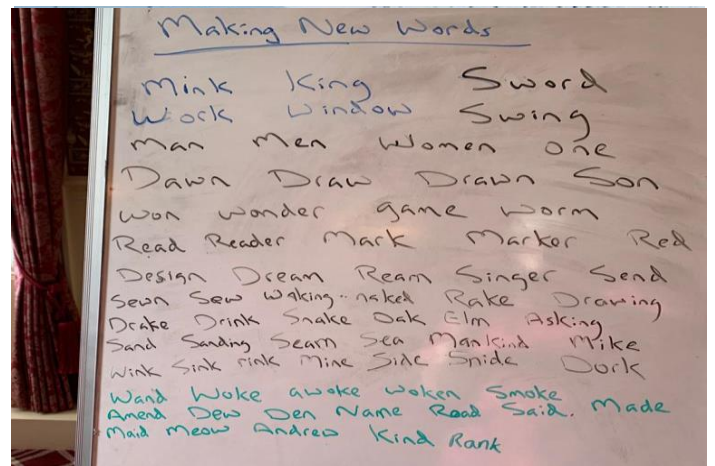 Making New Words
Mink King Sword
Work Window Swing
Man Men Women One
Dawn Draw Drawn Son
Won Wonder game worm
Read Reader Mark Marker Red
Design Dream Ream Singer Send
Sewn Sew Waking naked Rake Drawing
Drake Drink Snake Oak Elm Asking
Sand Sanding Seam Sea Mankind Mike
Wink Sink rink Mine Side Snide Dork
Wand Woke awoke woken Smoke
Amend Dew Den Name Road Said. Made
Maid Meow Andrew Kind Rank